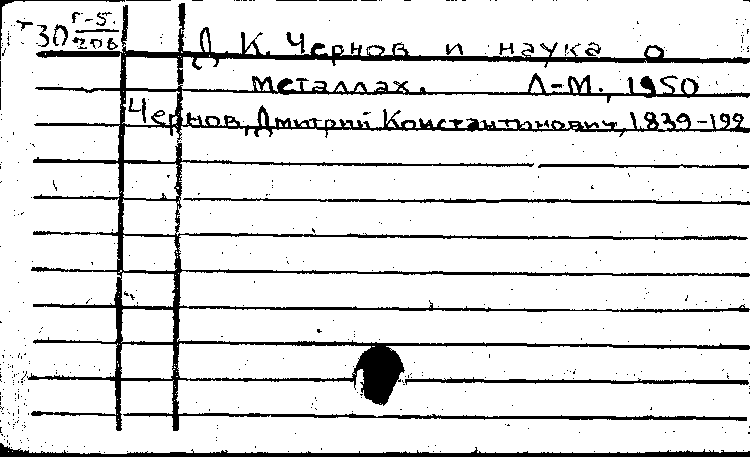 Т30 Г-5/206
Д. К. Чернов и наука о
металлах. Л-М., 1950
Чернов, Дмитрий Константинович, 1839-192